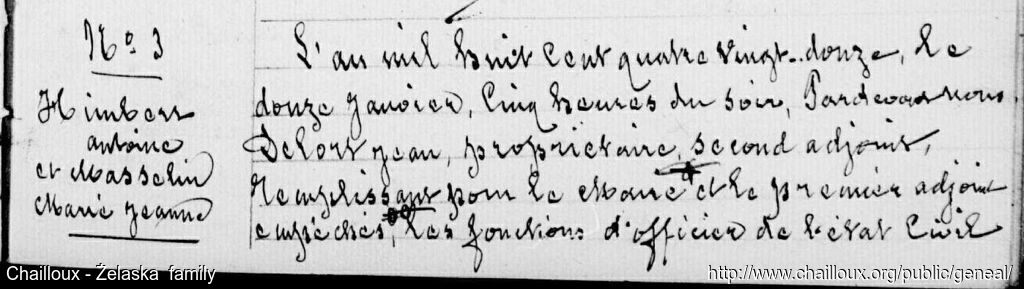 No 3
Himbert
antoine
et Masselin
Marie Jeanne
L'an mil huit cent quatre vingt-douze, le
douze Janvier, Cinq heures du soir, Pardevant nous
Delort Jean, propriétaire, second adjoint,
remplissant pour le Maire et le premier adjoint
empéchés, les fonctions d'officier de l'état Civil
Chailloux - Želaska family
http://www.chailloux.org/public/geneal/